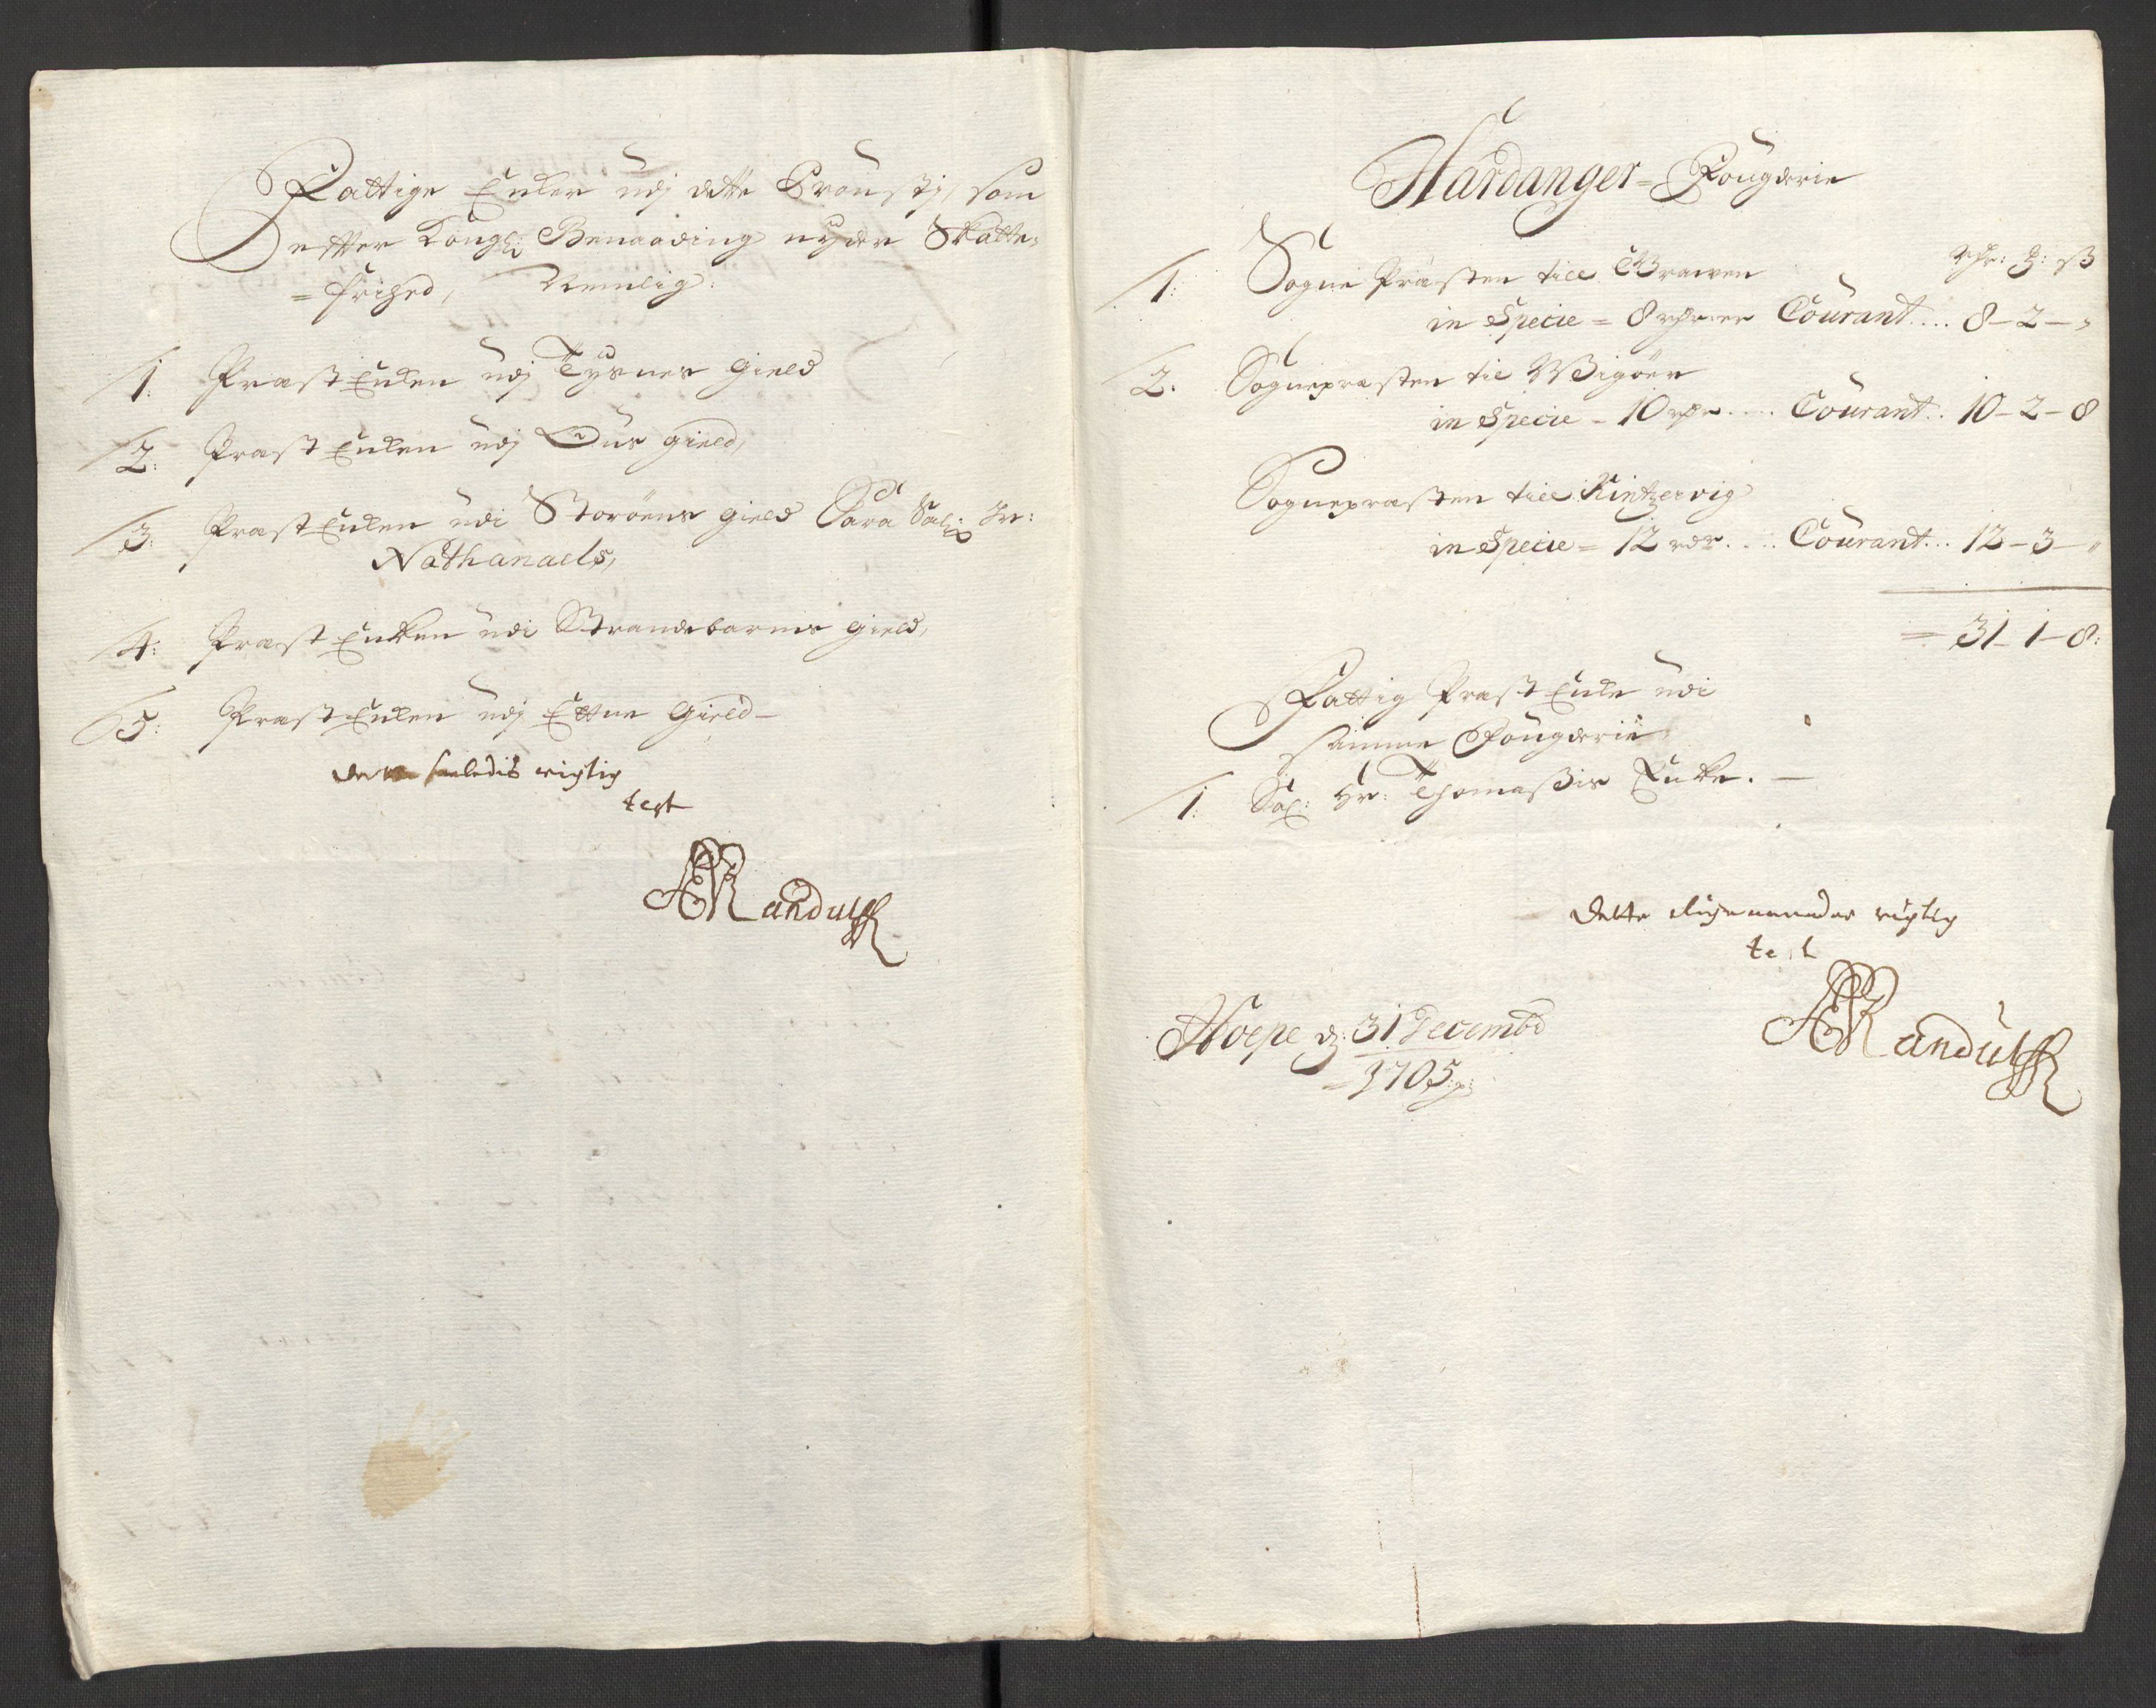 Fattige Encker udj dette Proustj, som
effter Kongl: Benaading nyder Skatte-
= frihed, Nemlig:
1: Præst Encken udj Tysnes gield
2: Præst Encken udj Ous gield,
3: Præst Encken udi Storöens gield Sara Sal: Hr:
Nathanaels,
4: Præst Encken udi Strandebarms gield,
5: Præst Encken udj Ettne gield-
saaledis rigtig
test
ARandulff
Hardanger = Fougderie
Rdr: : ß
1: Sogne Præsten till Grawen
in Specie = 8 rdr er Courant .... 8 - 2 - "
2. Sognepræsten til Wigöer
in Specie - 10 rdr .... Courant .. 10 - 2 - 8
Sognepræsten till Kintzervig
in Specie = 12 rdr .... Courant ... 12 - 3 - "
= 31 - 1 - 8:
Fattig Præst Encke udi
samme Fougderie
1: Sal: Hr: Thomaßis Encke. -
Dette rigtig
test
ARandulff
Hoepe d: 31 Decembr
= 1705